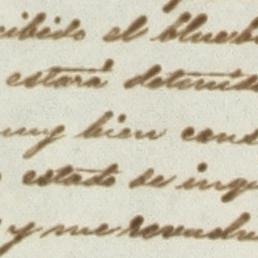 cibido el blueb
estará detenido
muy bien cons
estado de inge
y me revuelve